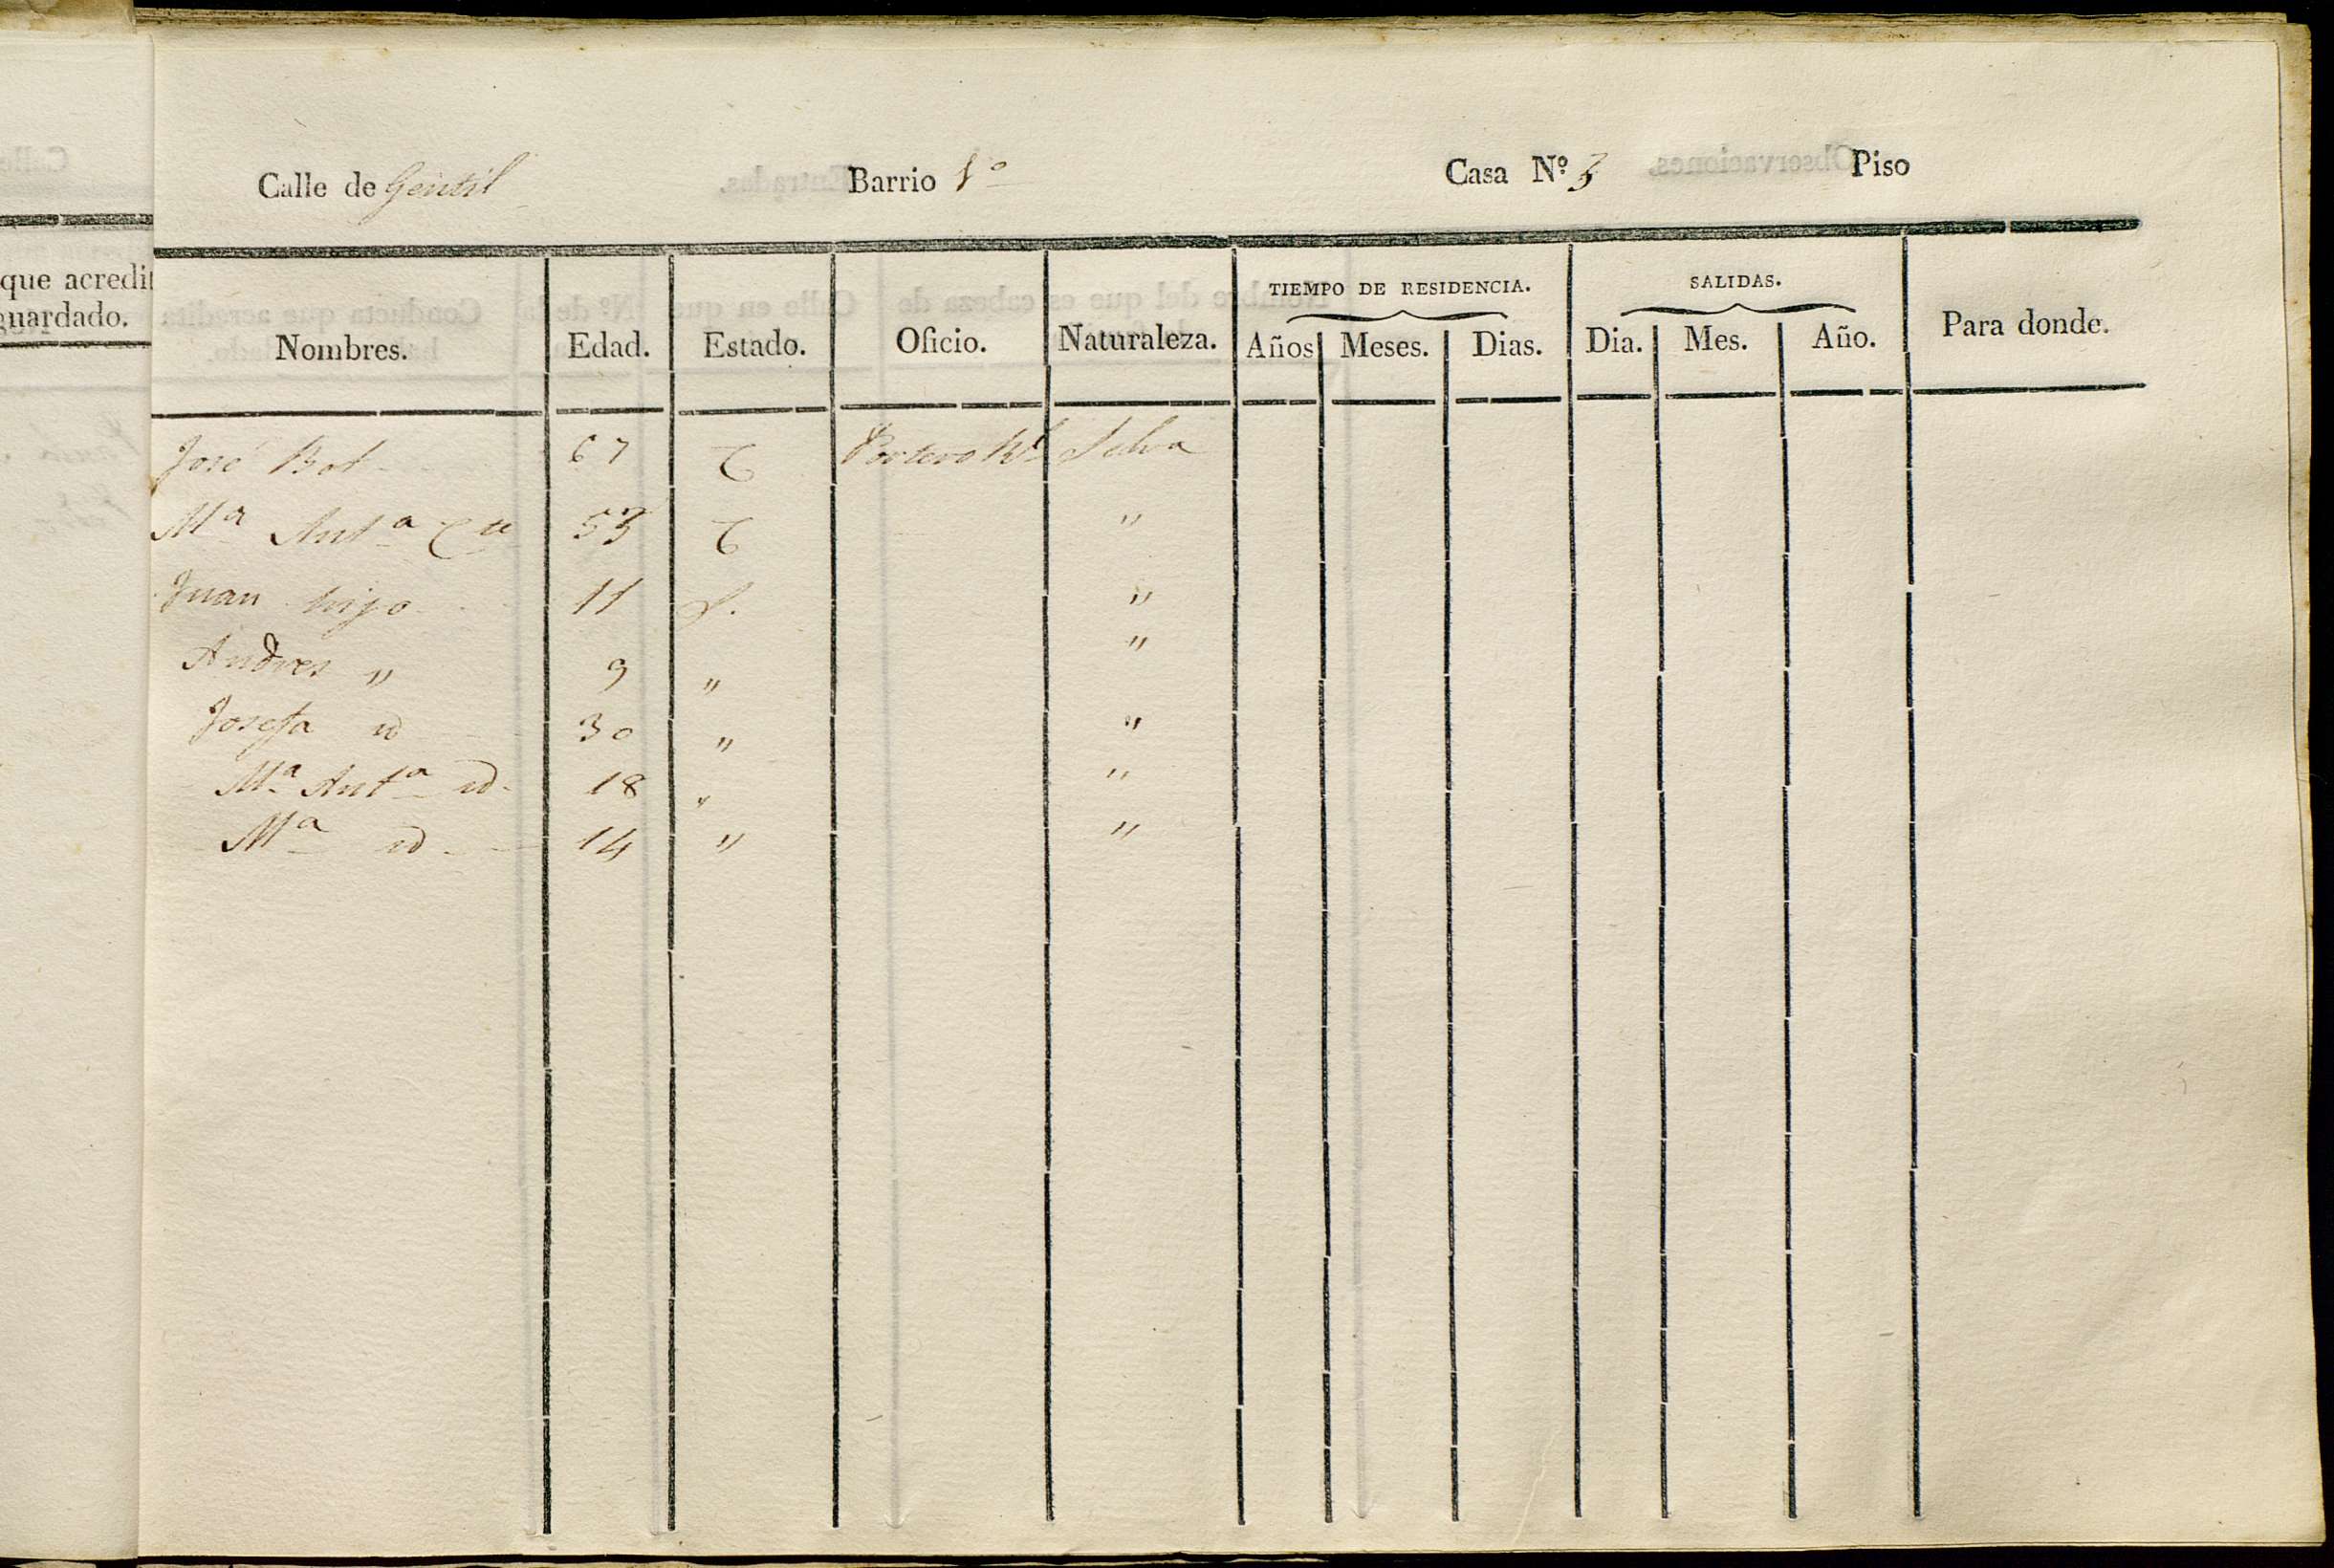 Calle de Gentil Barrio 1º Casa Nº 3 Piso
que acredit
guardado.
TIEMPO DE RESIDENCIA. SALIDAS.
Nombres. Edad. Estado. Oficio. Naturaleza. Años Meses. Dias. Dia. Mes. Año. Para donde.
José Bot 67 C Portero Rl Selva
Mª Antª 53 C "
Juan hijo 11 S. "
Andres " 9 " "
Josefa id 30 " "
Mª Antª id. 18 " "
Mª id 14 " "